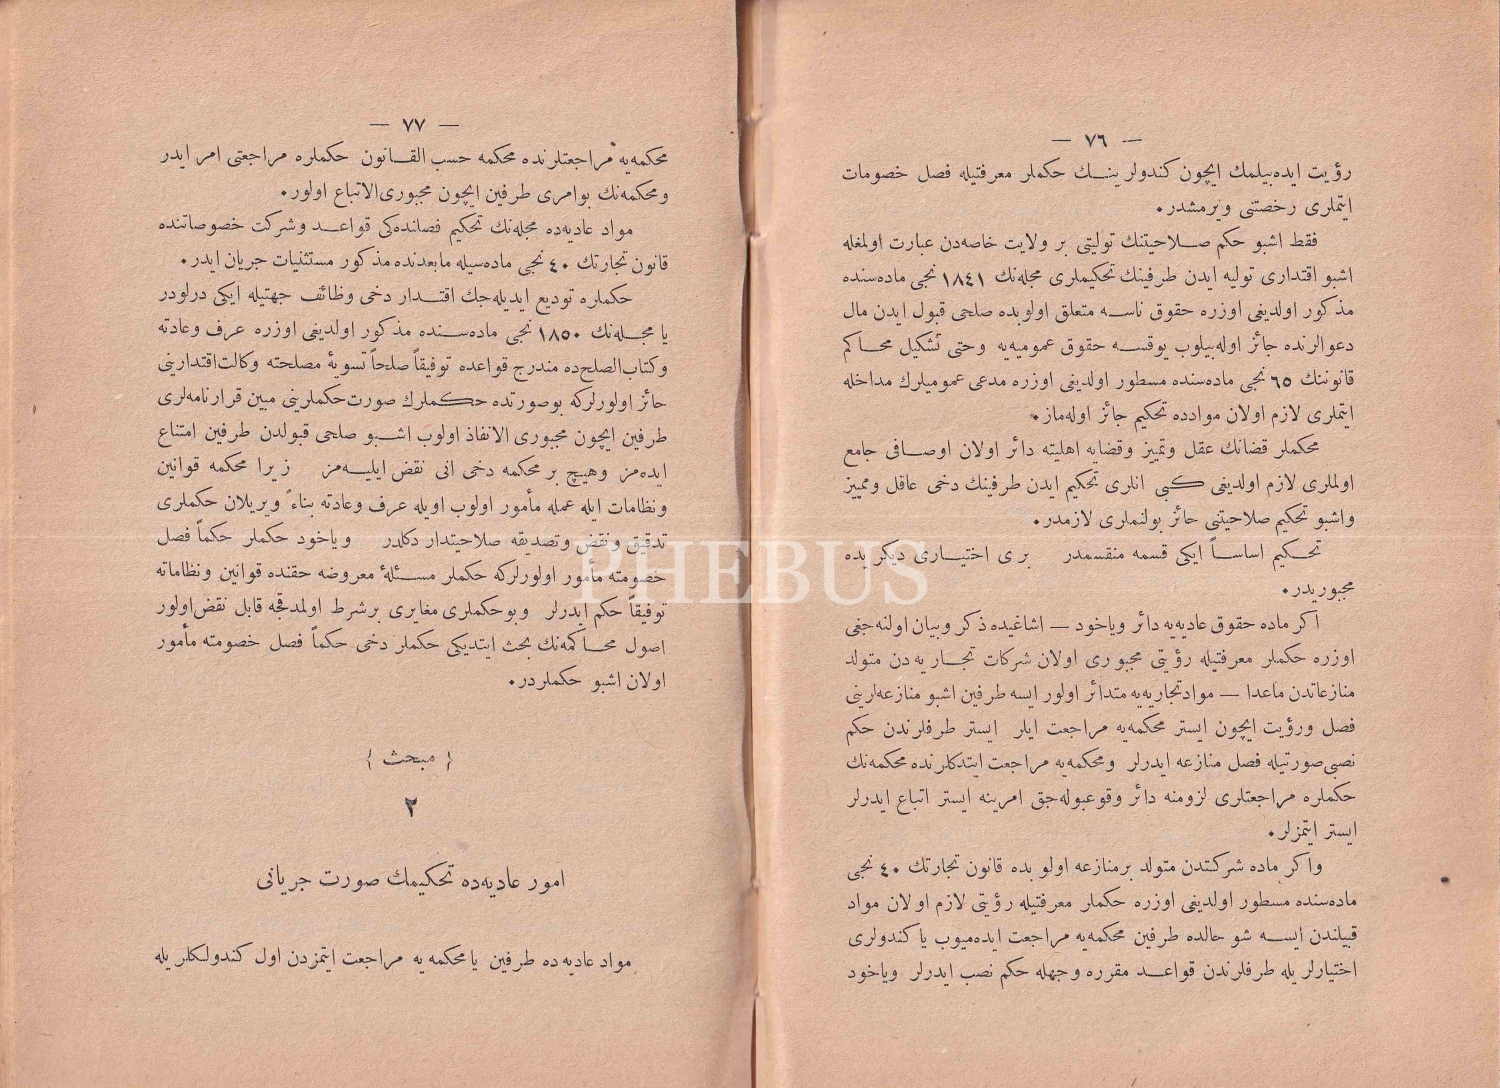 — ٧٦ —
رؤيت ايده‌بيلمك ايچون كندولرينــك حكملر معرفتيله فصل خصومات
ايتملرى رخصتنى ويرمشدر.
فقط اشبو حكم صــلاحيتنك توليتى بر ولايت خاصه‌دن عبارت اولمغله
اشبو اقتدارى توليه ايدن طرفينك تحكيملرى مجله‌نك ١٨٤١ نجى ماده‌سنده
مذكور اولديغى اوزره حقوق ناســه متعلق اولوبده صلحى قبول ايدن مال
دعوالرنده جائز اوله‌بيلوب يوقســه حقوق عموميه‌يه وحتى تشكيل محاكم
قانوننك ٦٥ نجى ماده‌سنده مسطور اولديغى اوزره مدعى عموميلرك مداخله
ايتملرى لازم اولان موادده تحكيم جائز اوله‌ماز.
محكملر قضانك عقل وتمييز وقضايه اهليته دائر اولان اوصــافى جامع
اولملرى لازم اولديغى كــبى انلرى تحكيم ايدن طرفينك دخى عاقل ومميز
واشبو تحكيم صلاحيتنى حائز بولنملرى لازمدر.
تحــكيم اساســاً ايكى قسمه منقسمدر برى اختيارى ديكر يده
مجبوريدر.
اكر ماده حقوق عاديه‌يه دائر وياخود — اشاغيده ذكر وبيان اولنه جغى
اوزره حكملر معرفتيله رؤيتى مجبورى اولان شركات تجاريه دن متولد
منازعاتدن ماعدا — مواد تجاريه‌يه متدائر اولور ايسه طرفين اشبو منازعه‌لرينى
فصل ورؤيت ايچون ايستر محكمه‌يه مراجعت ايلر ايستر طرفلرندن حكم
نصبى صورتيله فصل منازعه ايدرلر ومحكمه‌يه مراجعت ايتدكلرنده محكمه‌نك
حكملره مراجعتلرى لزومنه دائر وقوعبوله‌جق امرينه ايستر اتباع ايدرلر
ايستر ايتمزلر.
واكر ماده شركتدن متولد برمنازعه اولو بده قانون تجارتك ٤٠ نجى
ماده‌سنده مسطور اولديغى اوزره حكملر معرفتيله رؤيتى لازم اولان مواد
قبيلندن ايســه شو حالده طرفين محكمه‌يه مراجعت ايده‌ميوب يا كندولرى
اختيارلر يله طرفلرندن قواعــد مقرره وجهله حكم نصب ايدرلر وياخود
— ٧٧ —
محكمه‌يه مراجعتلرنده محكمه حسب القــانون حكملره مراجعتى امر ايدر
ومحكمه‌نك بوامرى طرفين ايچون مجبورى‌الاتباع اولور.
مواد عاديه‌ده مجله‌نك تحكيم فصلنده‌كى قواعــد وشركت خصوصاتنده
قانون تجارتك ٤٠ نجى ماده‌سيله مابعدنده مذكور مستثنيات جريان ايدر.
حكملره توديع ايديله‌جك اقتــدار دخى وظائف جهتيله ايكى درلودر
يا مجــله‌نك ١٨٥٠ نجى ماده‌ســنده مذكور اولديغى اوزره عرف وعادته
وكتاب‌الصلح‌ده مندرج قواعده توفيقاً صلحاً تسويۀ مصلحته وكالت‌اقتدارينى
حائز اولورلركه بوصورتده حــكملرك صورت‌حكملرينى مبين قرارنامه‌لرى
طرفين ايچون مجبورى الانفاذ اولوب اشــبو صلحى قبولدن طرفين امتناع
ايده‌مز وهيچ بر محكمه دخى انى نقض ايليــه‌مز زيرا محكمه قوانين
ونظامات ايله عمله مأمور اولوب اويله عرف وعادته بناءً ويريلان حكملرى
تدقيق ونقض وتصديقه صلاحيتدار دكلدر وياخود حكملر حكماً فصل
خصومته مأمور اولورلركه حكملر مسئلۀ معروضه حقنده قوانين ونظاماته
توفيقاً حكم ايدرلر وبوحكملرى مغايرى برشرط اولمدقجه قابل نقض‌اولور
اصول محــاكمه‌نك بحث ايتديكى حكملر دخى حكماً فصل خصومته مأمور
اولان اشبو حكملردر.
{ مبحث }
٢
امور عاديه‌ده تحكيمك صورت جريانى
مواد عاديه‌ده طرفين يا محكمه‌يه مراجعت ايتمزدن اول كندولكلر يله
PHEBUS